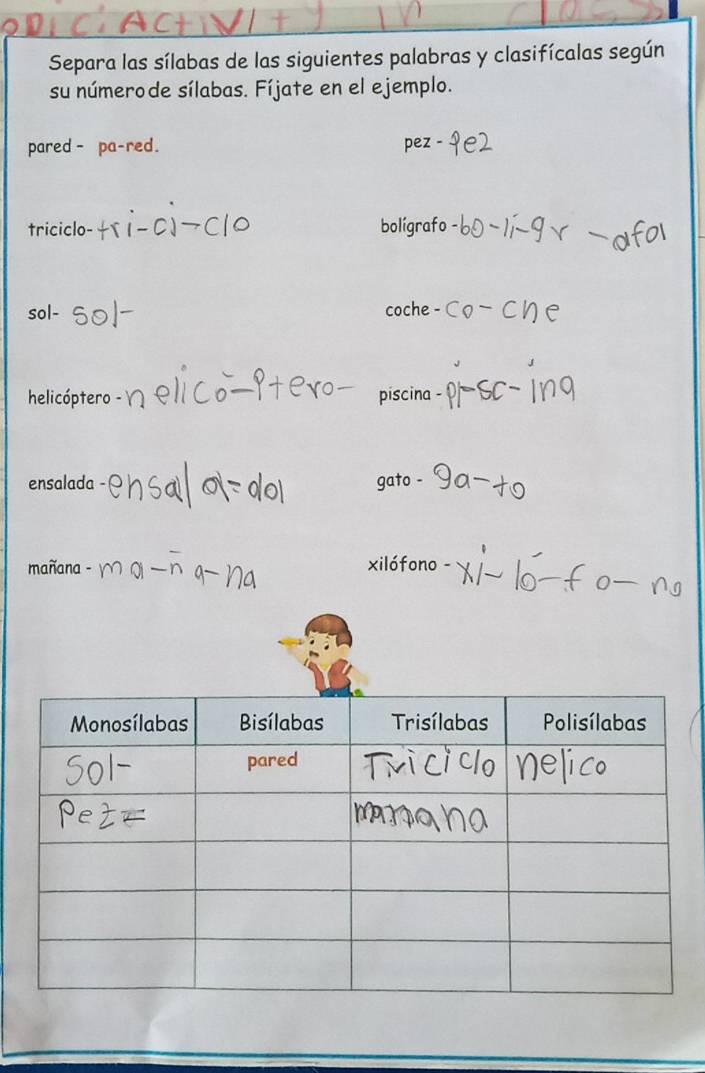 Activity in class
Separa las sílabas de las siguientes palabras y clasifícalas según
su número de sílabas. Fíjate en el ejemplo.
pared - pa-red.
pez - pez
triciclo- tri-ci-clo
bolígrafo - bo-lí-gr-afo
sol- sol-
coche - co-che
helicóptero - helicó-ptero-
piscina - pi-sc-ina
ensalada - ensala-da
gato - ga-to
mañana - ma-ña-na
xilófono - xi-ló-fo-no
Monosílabas Bisílabas Trisílabas Polisílabas
Sol- pared Triciclo helico
Pez mañana